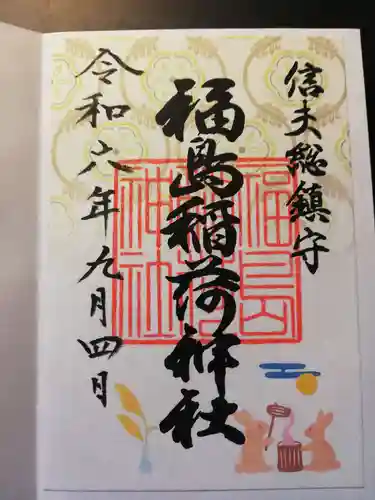 信夫総鎮守
福島稲荷神社
令和六年九月四日
福島稲荷神社